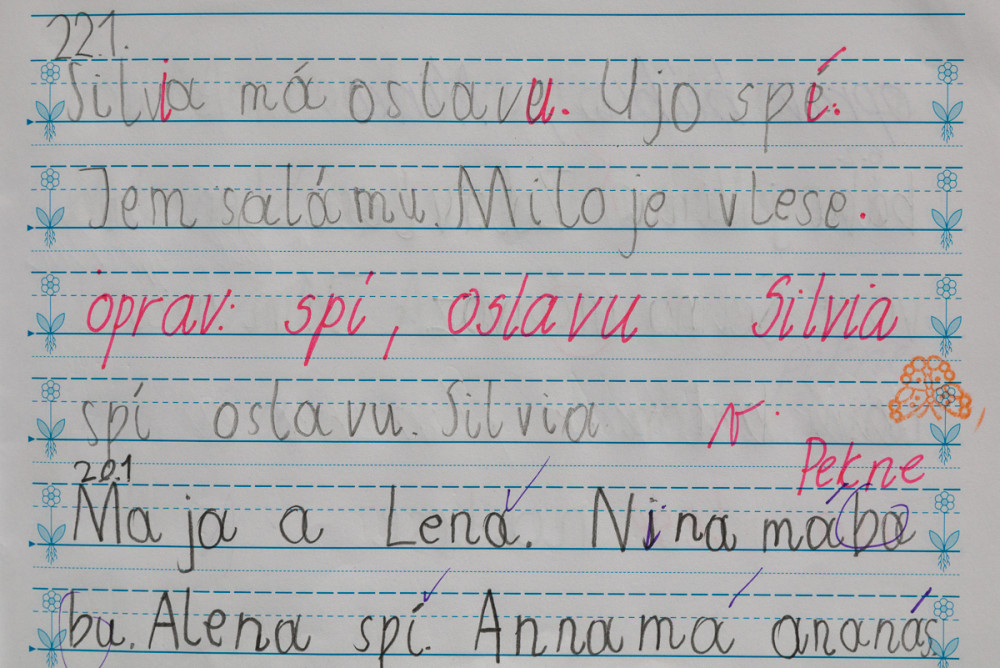 22.1.
Silvia má oslavu. Ujo spí.
Jem salámu. Milo je v lese.
oprav: spí, oslavu Silvia
spí oslavu. Silvia
Pekne
20.1
Maja a Lena. Nina má ba
bu. Alena spí. Anna má ananás.